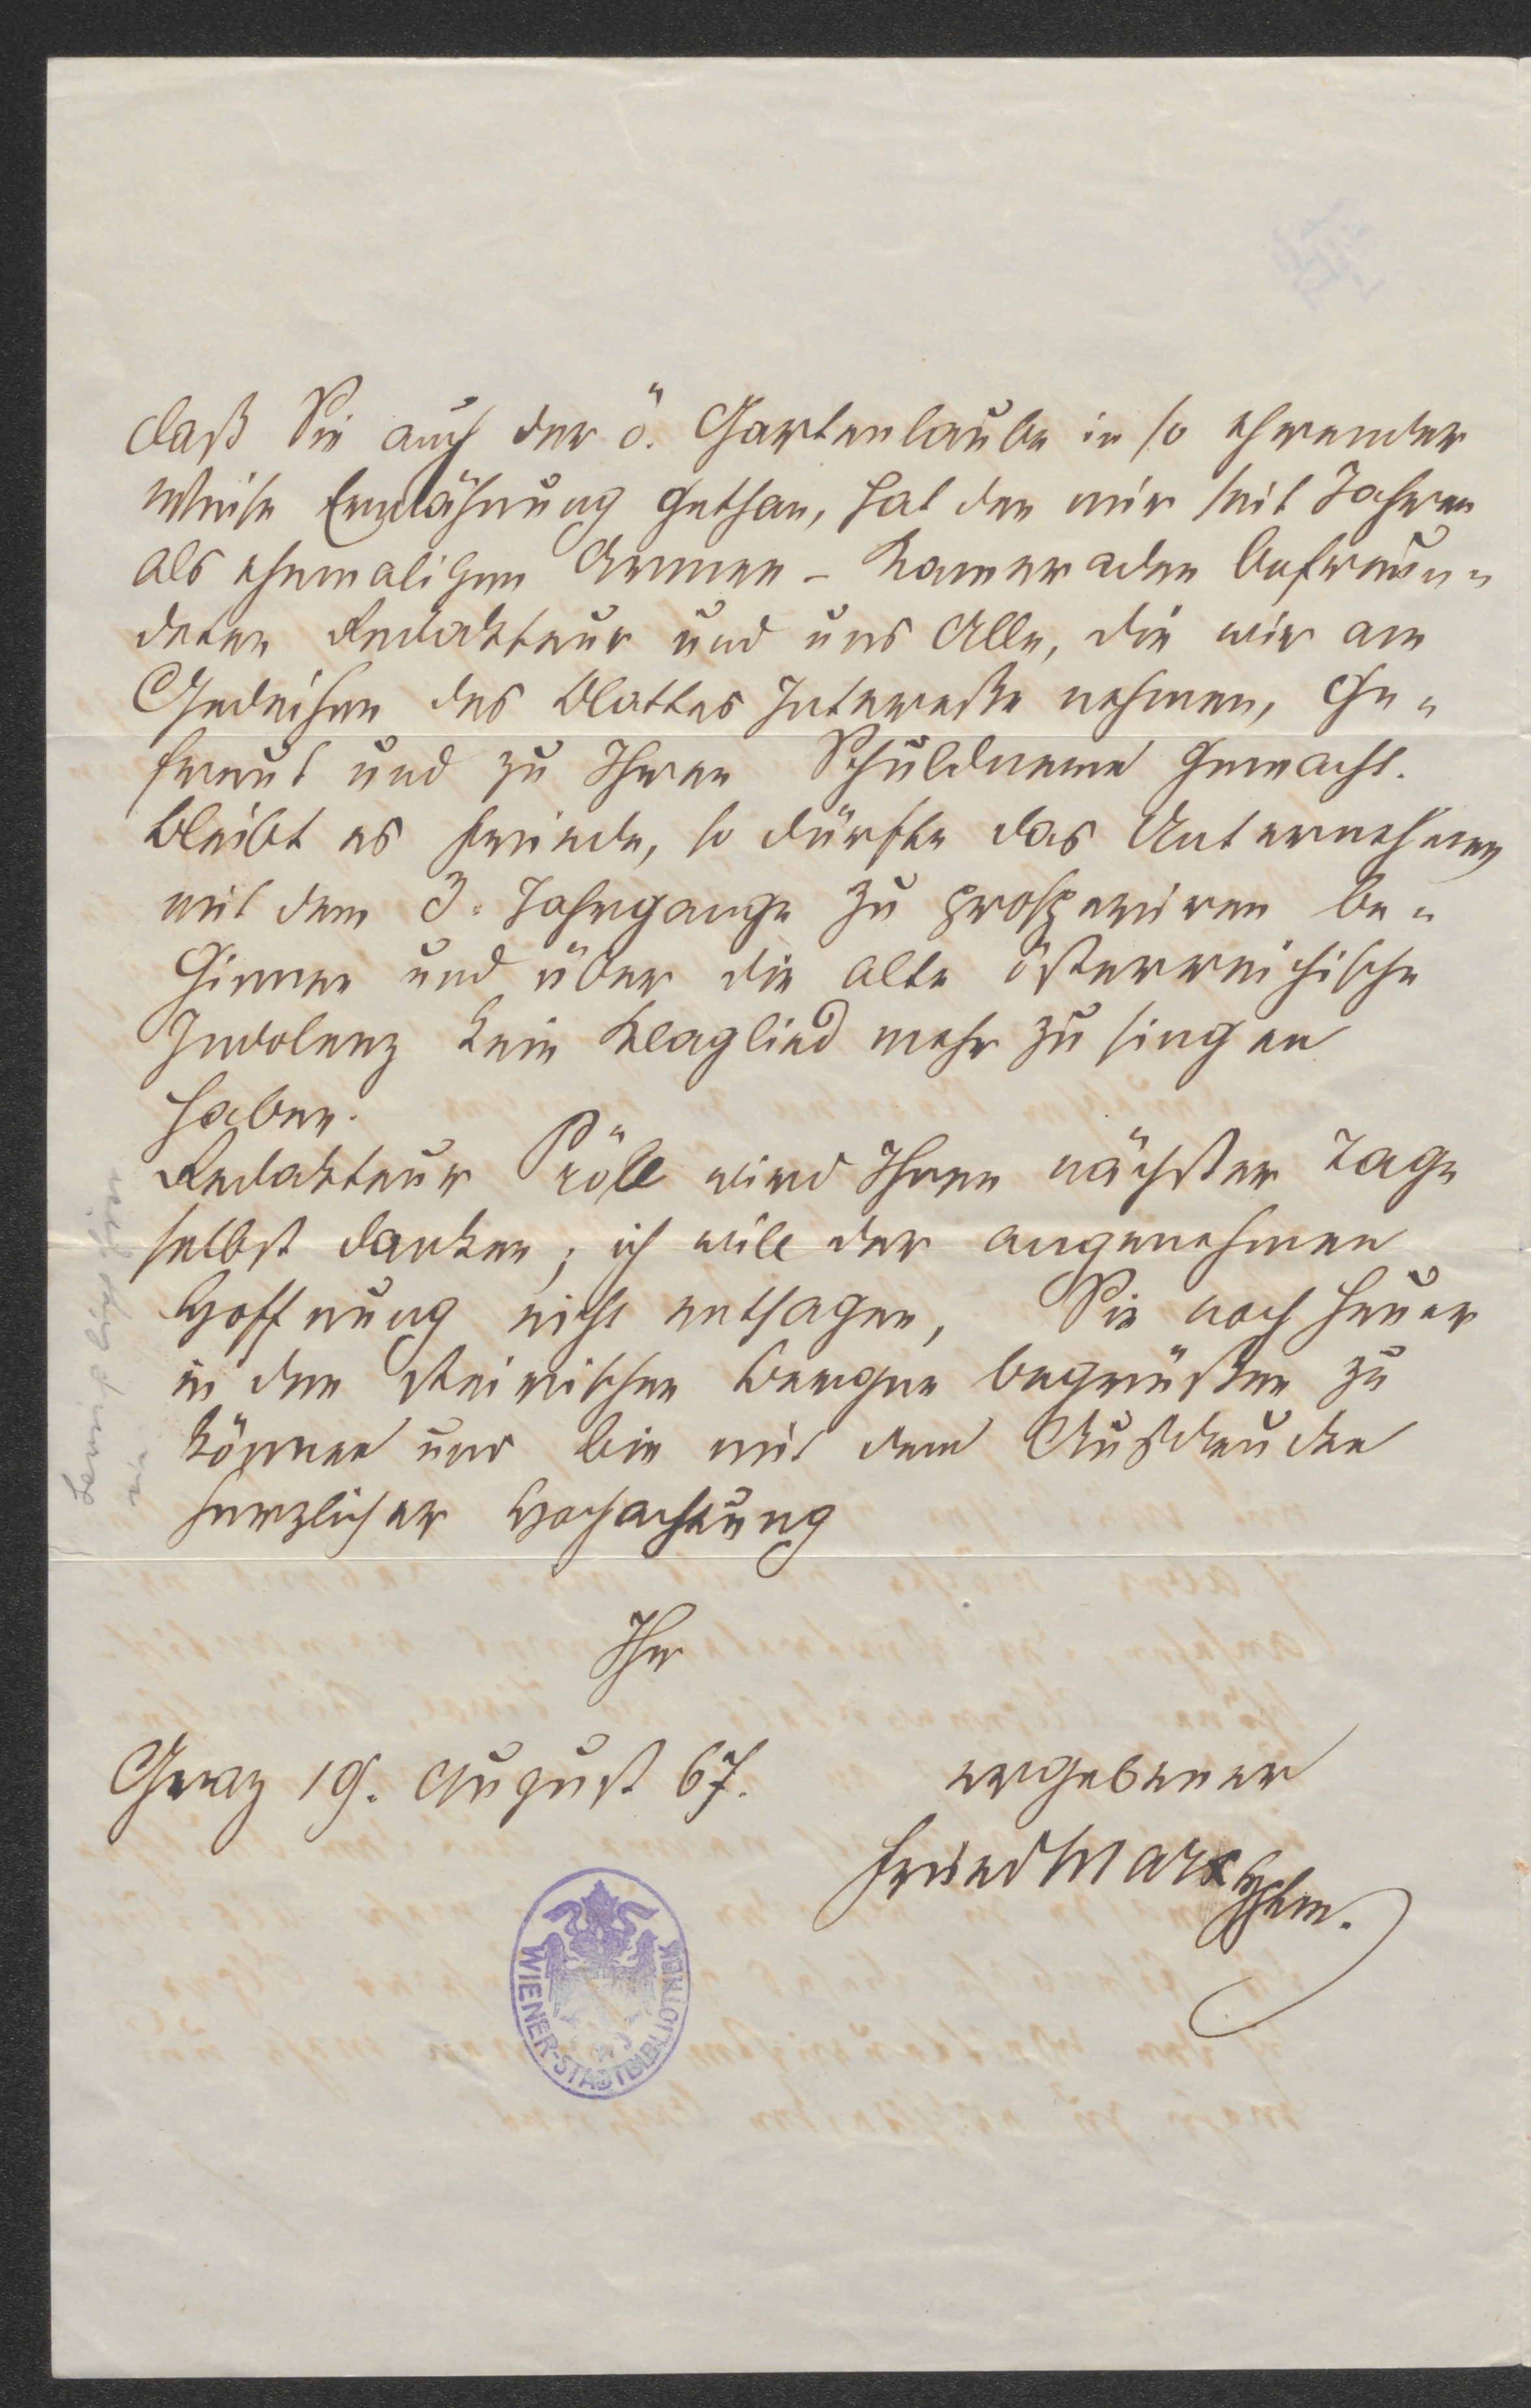 daß Sie auch der ö. Gartenlaube in so ehrender
Weise Erwähnung gethan, hat den mir seit Jahren
als ehemaligen Armee-Kameraden befreun=
deten Redakteur und uns Alle, die wir am
Gedeihen des Blattes Interesse nehmen, ge=
freut und zu Ihren Schuldnern gemacht.
Bleibt es Friede, so dürfte das Unternehmen
mit dem 3. Jahrgange zu prosperiren be=
ginnen und über die alte österreichische
Indolenz kein Klaglied mehr zu singen
haben.
Redakteur Pröll wird Ihnen nächster Tage
selbst danken; ich will der angenehmen
Hoffnung nicht entsagen, Sie noch heuer
in den steirischen Bergen begrüßen zu
können und bin mit dem Ausdrucke
herzlicher Hochachtung
Ihr
Graz 19. August 67.
ergebener
Fried Marx
WIENER-STADTBIBLIOTHEK